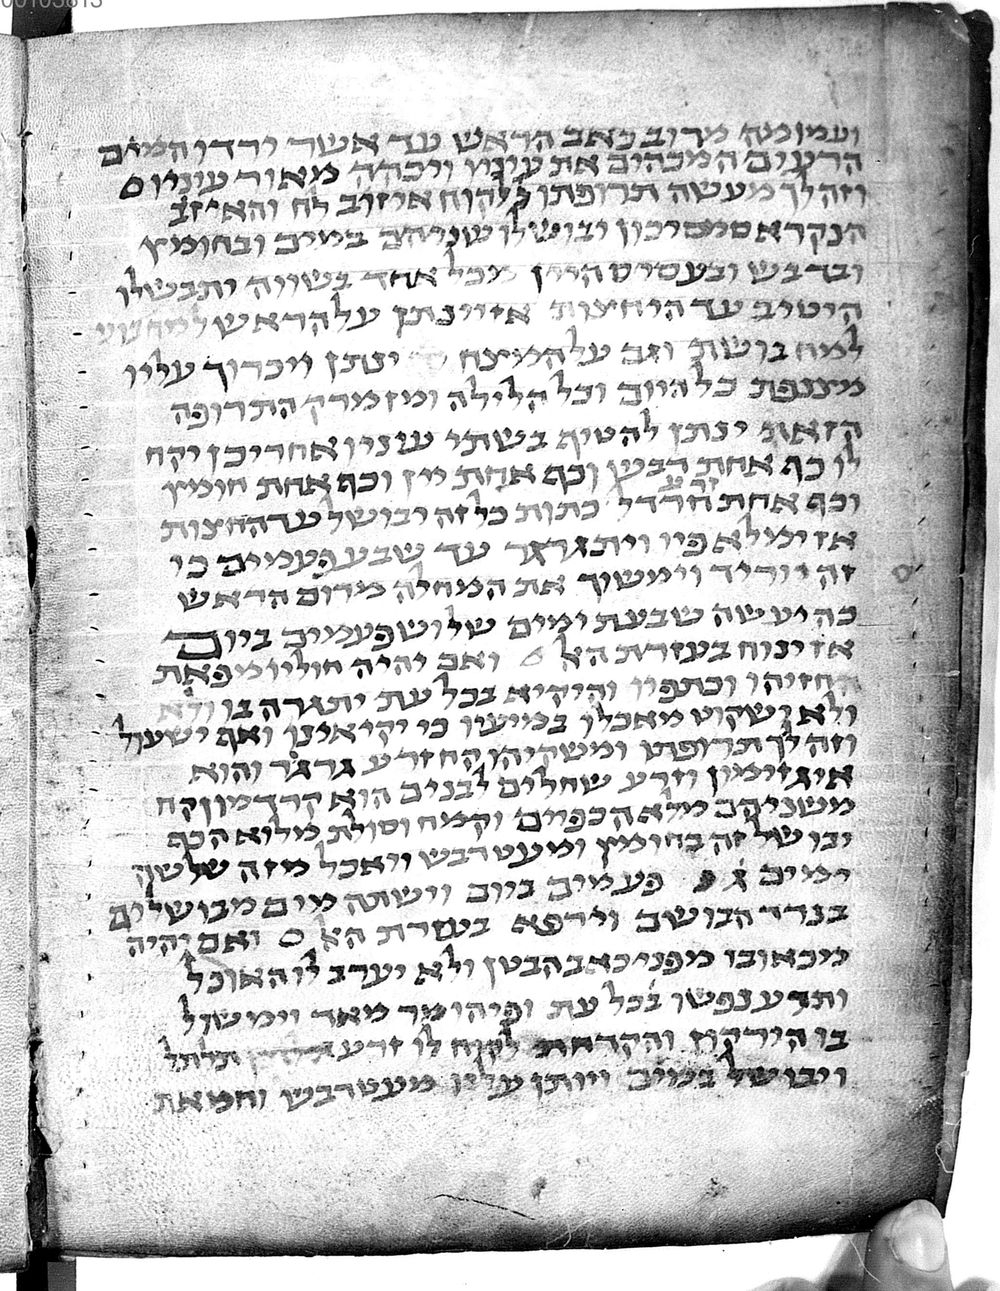 00105813
ועמומה מרוב כאב הראש עד אשר ירדו המים
הרעים המכהים את עיניו ויכהה מאור עיניו
וזה לך מעשה תרופתו ללקוח איזוב לח והאיזב
הנקרא סמסיכון ובושלו שניהם במים ובחומץ
ובדבש ובעסיס היין מכל אחד בשווה יתבשלו
היטיב עד היחצות אזיינתן על הראש
למחבושת וגם על המיצח ינתן ויכרוך עליו
מיצנפת כל היום וכל הלילה ומן מרק התרופה
הזאת ינתן להטיף בשתי עיניו ואחריכן יקח
לו כף אחת דבש וכף אחת יין וכף אחת חומץ
זרע
וכף אחת חרדל כתות כל זה יבושל עד החצות
אז ימלא פיו ויתגרגר עד שבע פעמים כי
זה יוריד וימשוך את המחלה מרום הראש
כה יעשה שבעת ימים שלוש פעמים ביום
אז ינוח בעזרת האל ואם יהיה חוליו מפאת
החזיהו וכתפיו והיקיא בכל עת יתגרה בו
ולא ישקוט מאכלו במיעיו כי יקיאינו ואף ישעול
וזה לך תרופתו ומשקיהו קח זרע גרגר והוא
איגזימון וזרע שחלים לבנים הוא קרדמון קח
משניהם מלא הכפיים וקמח וסולת מלוא הכף
יבושל זה בחומץ ומעט דבש וואכל מזה שלשה
ימים ג פעמים ביום וישתה מים מבושלים
בנרד הבושם וירפא בעזרת האל ואם יהיה
מיכאובו מפני כאב הבטן ולא יערב לו האוכל
ותדע נפשו בכל עת ופיהו מר מאד וימשול
בו הירקון והקדחת לקוח לו זרע
ויבושל במים ויותן עליו מעט דבש וחמאת